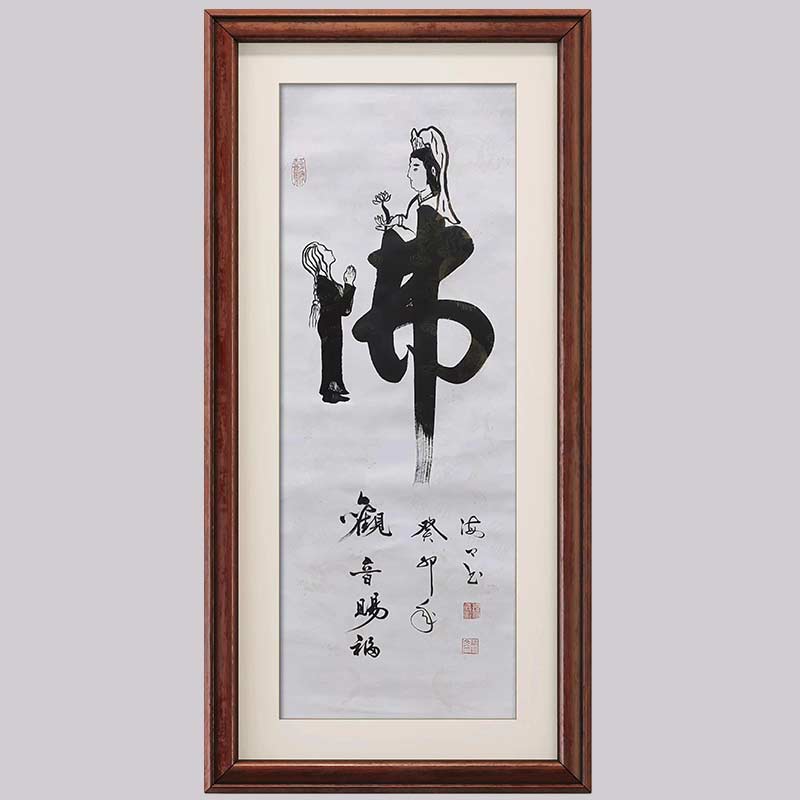 佛
觀音賜福
癸卯年
海